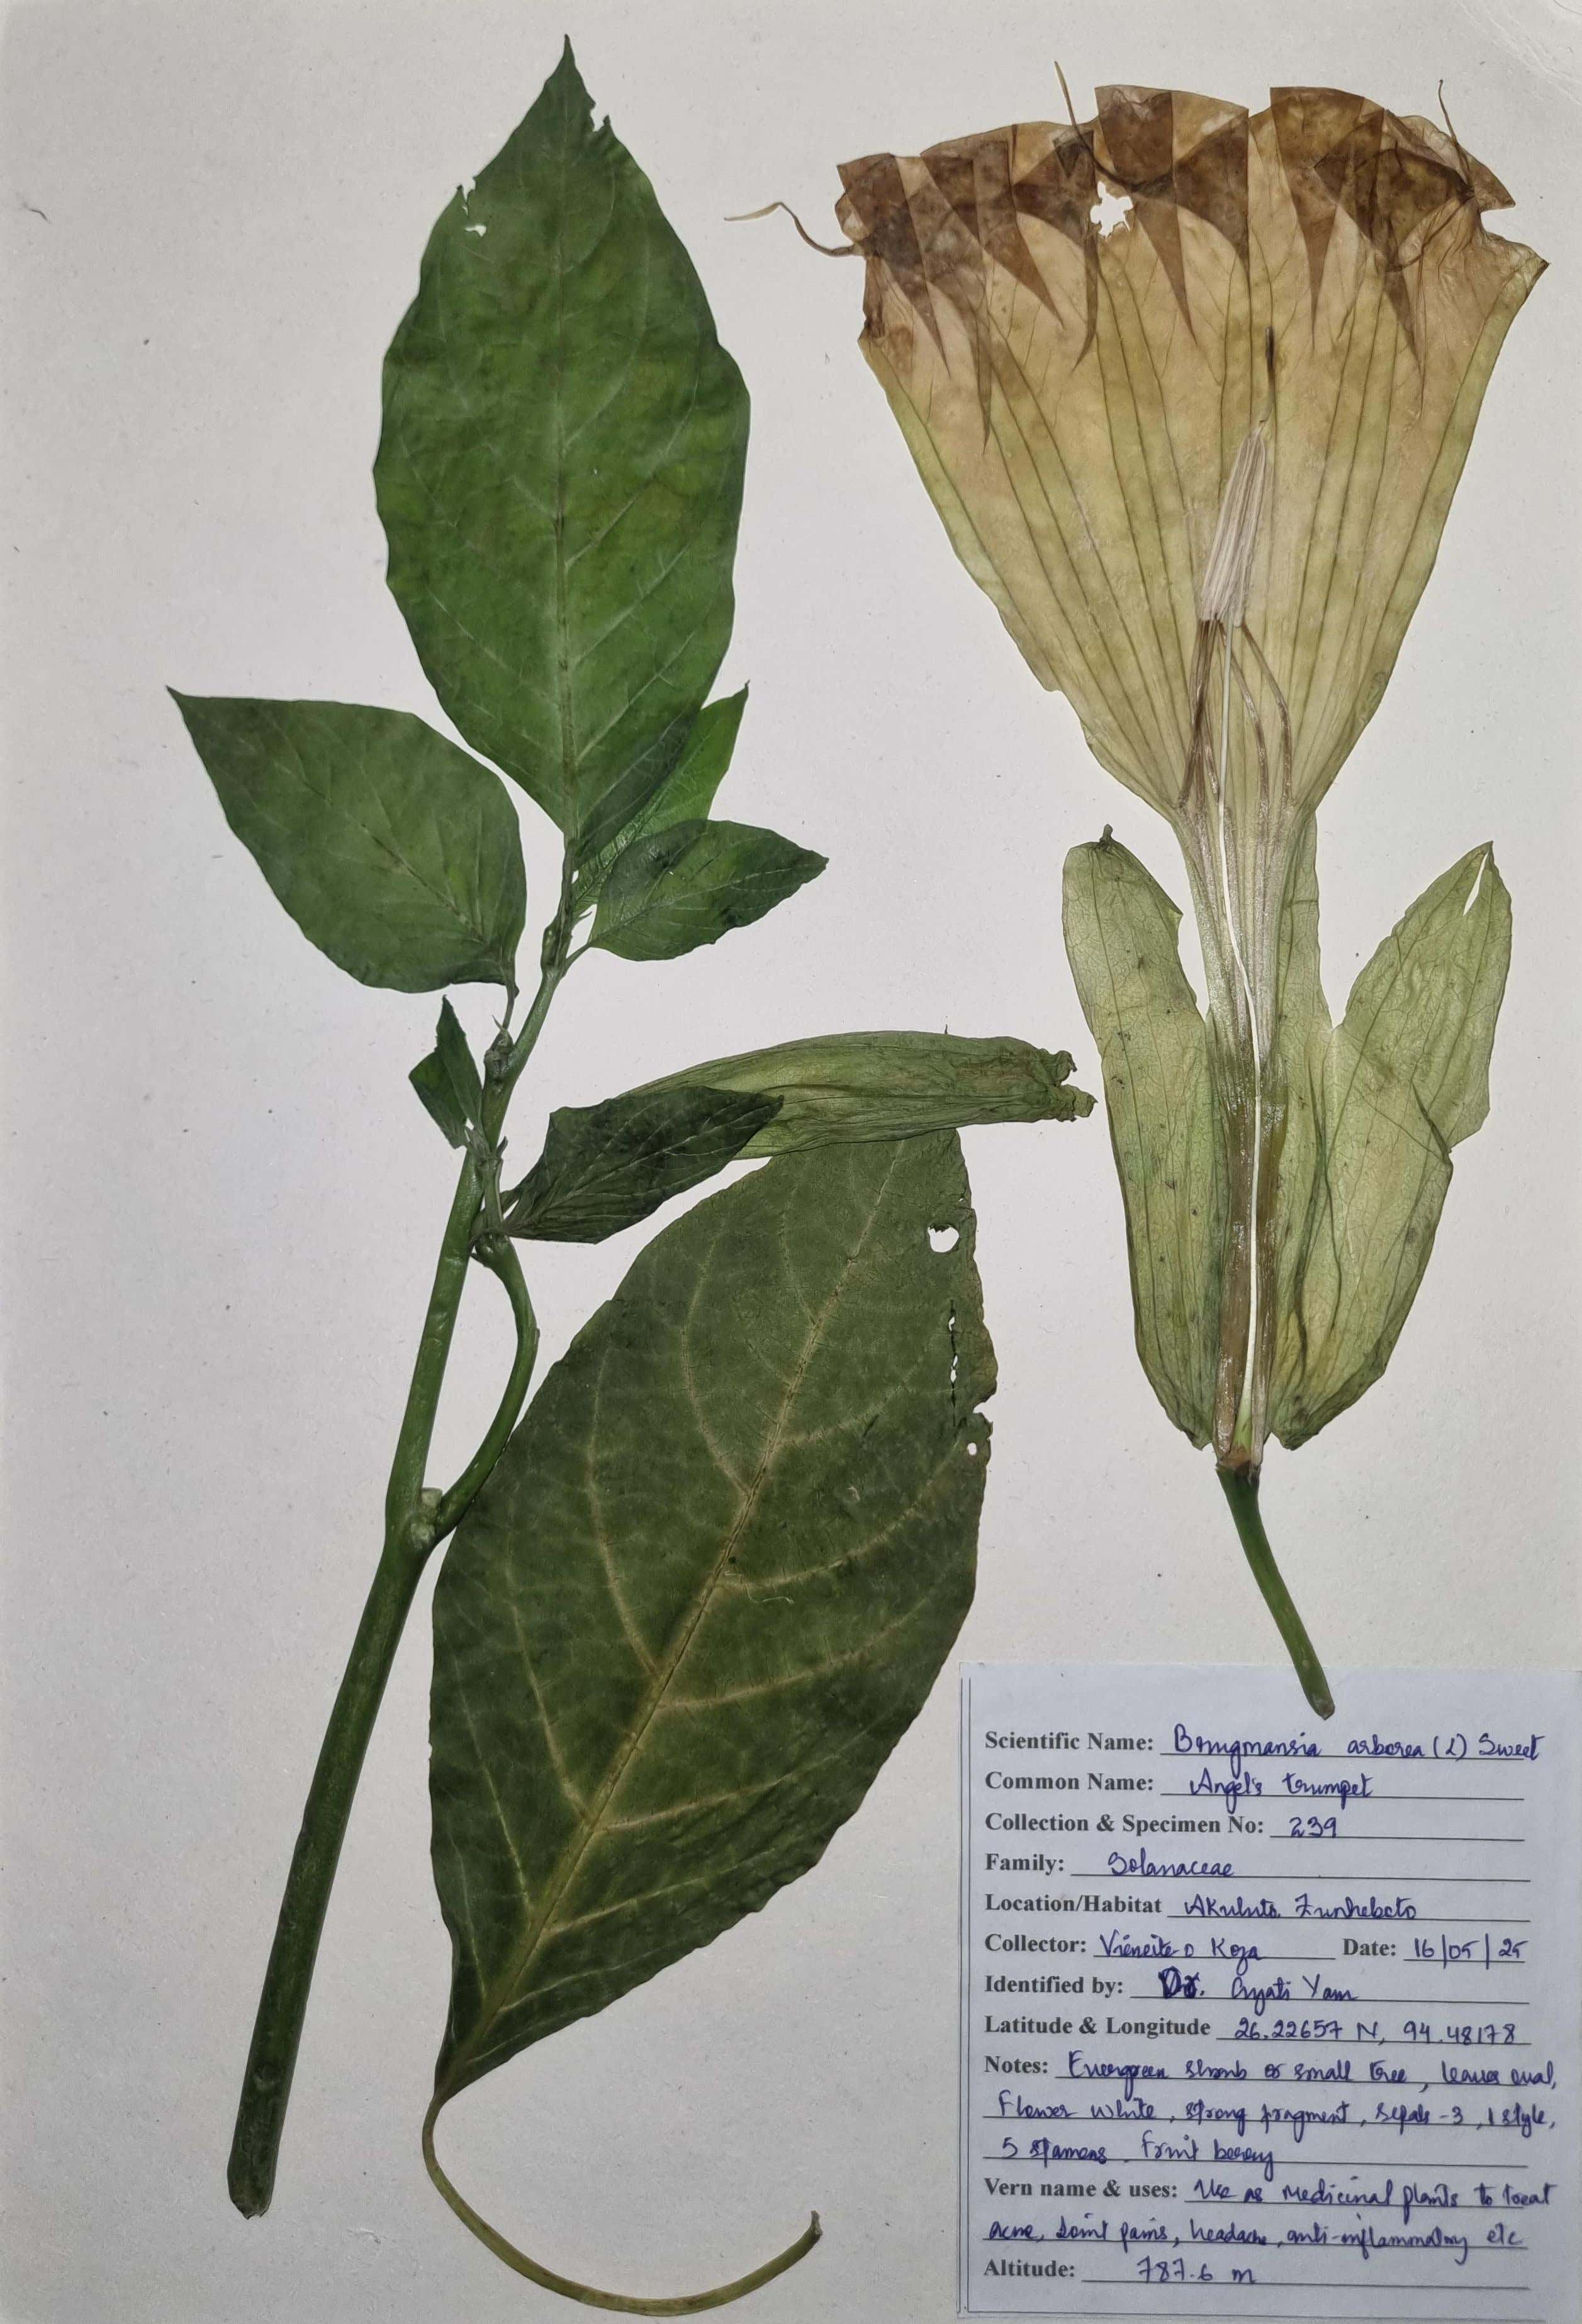 Scientific Name: Brugmansia arborea (L) Sweet
Common Name: Angel's trumpet
Collection & Specimen No: 239
Family: Solanaceae
Location/Habitat Akuluto, Zunheboto
Collector: Koza Date: 16/05/25
Identified by: Dr. Yam
Latitude & Longitude 26.22657 N, 94.48178
Notes: Evergreen shrub or small tree, leaves oval,
Flower white, strong fragment, sepals -3, 1 style,
5 stamens. Fruit berry
Vern name & uses: Use as medicinal plants to treat
acne, Joint pains, headache, anti-inflammatory etc
Altitude: 787.6 m